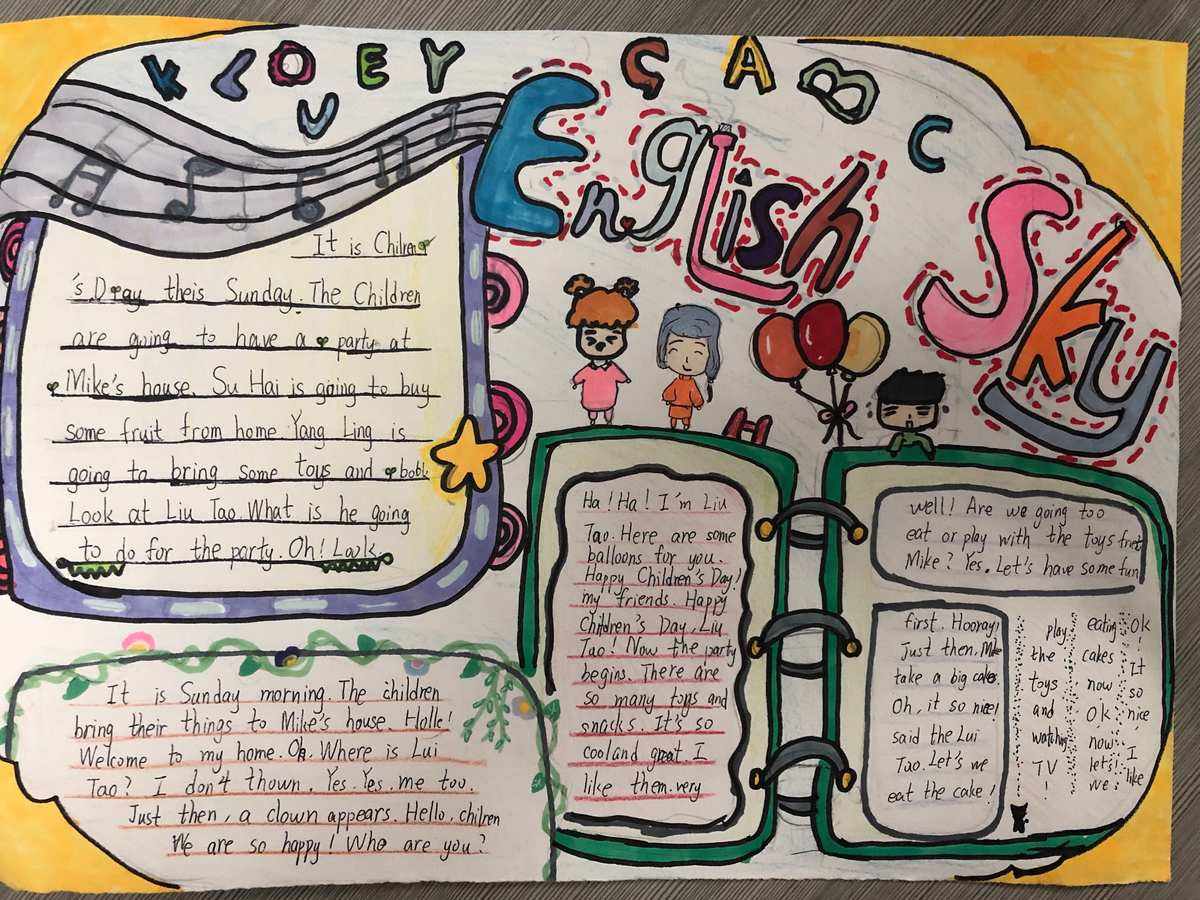 K L O V E Y G A B C
English Sky
It is Chilren
's Dray theis Sunday. The Children
are going to have a party at
Mike's house. Su Hai is going to buy
some fruit from home Yang Ling is
going to bring some toys and
Look at Liu Tao. What is he going
to do for the party. Oh! Look
It is Sunday morning. The children
bring their things to Mike's house. Holle!
Welcome to my home. Oh. Where is Lui
Tao? I don't thown. Yes. Yes. me too.
Just then, a clown appears. Hello, chilren
We are so happy! Who are you?
H
Ha! Ha! I'm Liu
Tao. Here are some
balloons for you.
Happy Children's Day!
my friends. Happy
Children's Day, Liu
Tao! Now the party
begins. There are
so many tops and
snacks. It's so
cooland great. I
like them. very
well! Are we going too
eat or play with the toys
Mike? Yes. Let's have some fun
first. Hooray!
Just then, Mike
take a big cakes.
Oh, it so nice!
said the Lui
Tao. Let's we
eat the cake!
play eating Ok
the cakes ! It
toys now so
and Ok nice
watching now !
TV let's I
! we like